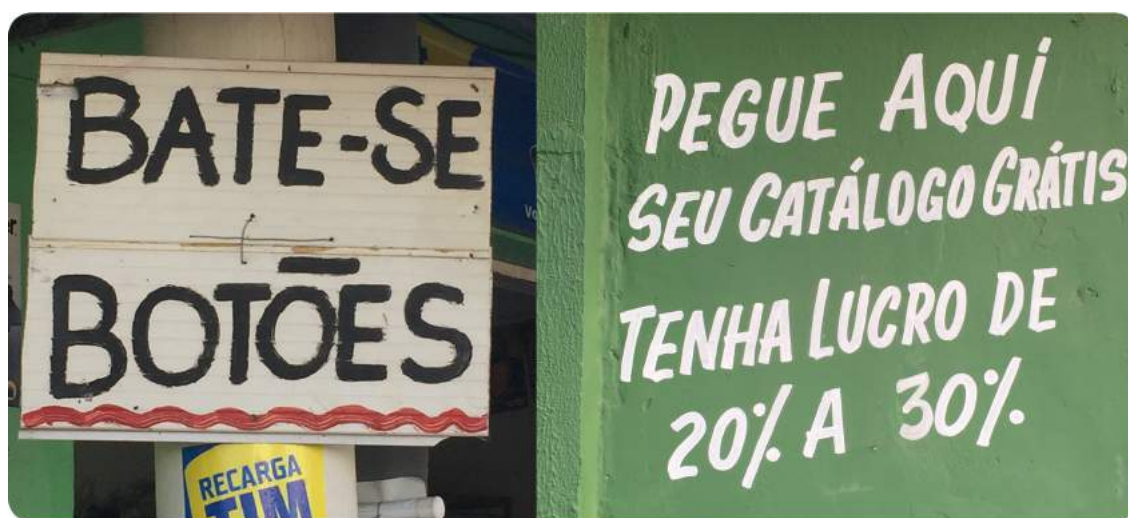 BATE-SE
BOTÕES
RECARGA
TIM
PEGUE AQUÍ
SEU CATÁLOGO GRÁTIS
TENHA LUCRO DE
20% A 30%